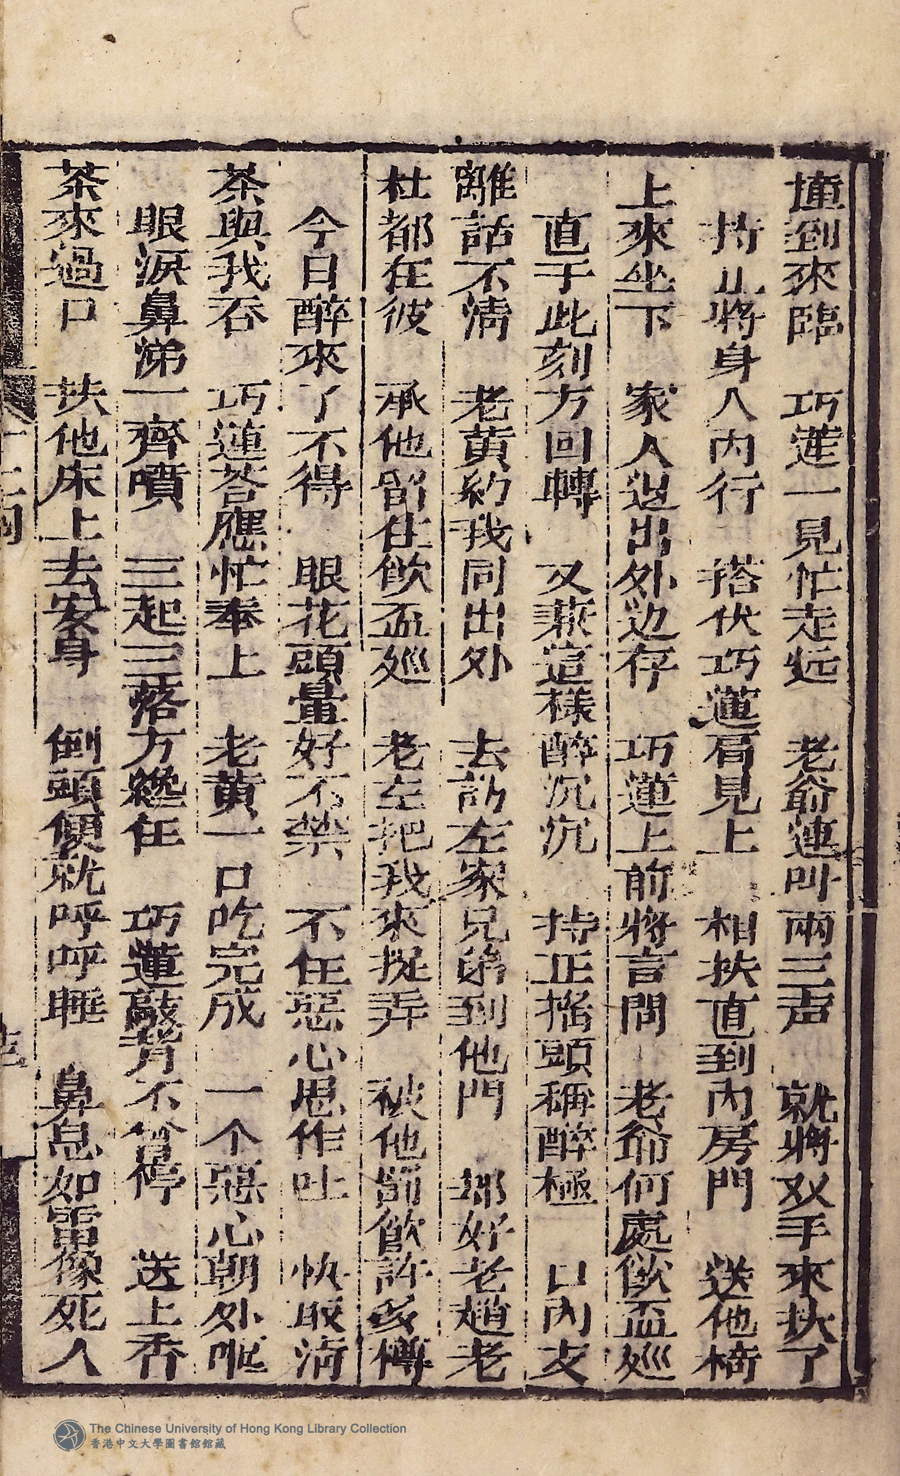 撞到來臨 巧莲一見忙走近 老爺蓮叫兩三声 就將双手來扶了
持正將身入内行 搭伏巧蓮肩見上 相扶直到内房門 送他椅
上來坐下 家人退出外边存 巧蓮上前將言問 老爺何處飲盃廵
直于此刻方回轉 又兼這樣醉沉沉 持正搖頭稱醉極 口内支
離話不清 老黄約我同出外 去訪左家兄弟到他門 那好老趙老
杜都在彼 承他留住飲盃廵 老左把我來捉弄 被他罰飲許多樽
今日醉來了不得 眼花頭暈好不禁 不住惡心思作吐 快取清
茶與我吞 巧蓮荅應忙奉上 老黄一口吃完成 一个惡心朝外嘔
眼淚鼻涕一齊噴 三起三落方纔住 巧蓮敲背不曾停 送上香
茶來過口 扶他床上去安身 倒頭便就呼呼睡 鼻息如雷像死人
The Chinese University of Hong Kong Library Collection
香港中文大學圖書館館藏